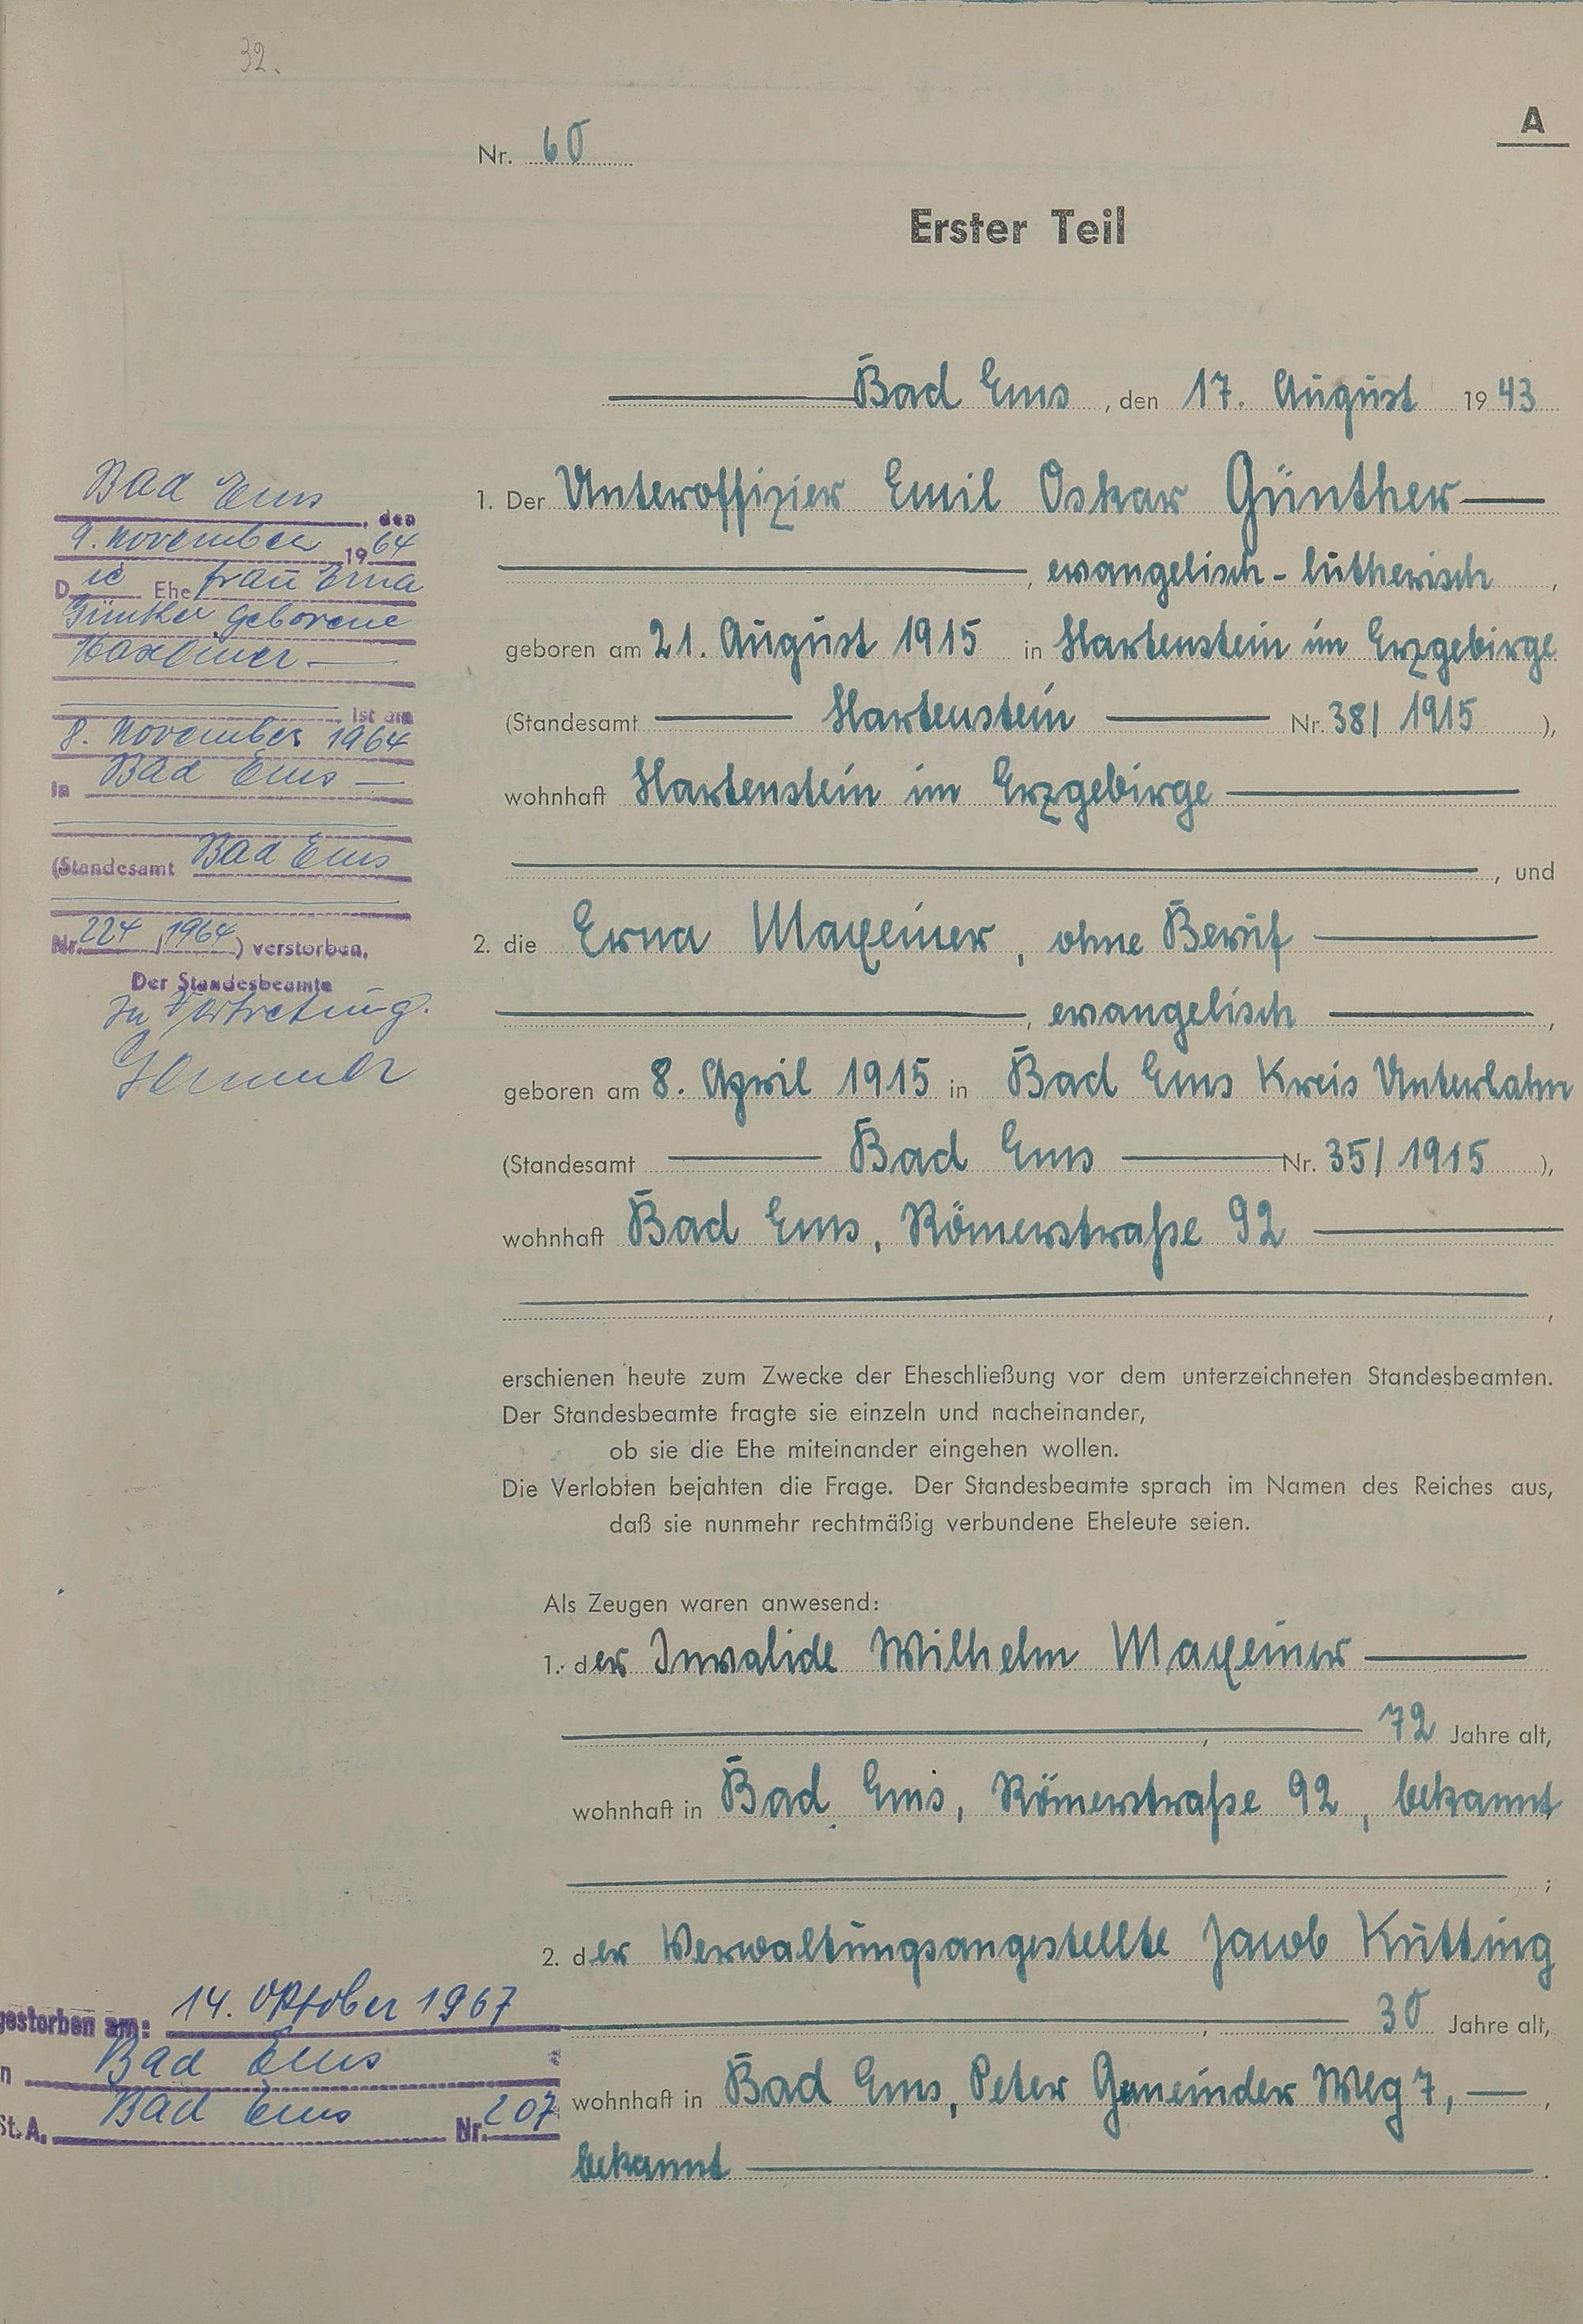 32.
A
Nr. 60
Erster Teil
Bad Ems, den 17. August 1943
1. Der Unteroffizier Emil Oskar Günther
, evangelisch-lutherisch,
geboren am 21. August 1915 in Hartenstein im Erzgebirge
(Standesamt Hartenstein Nr. 38/1915),
wohnhaft Hartenstein im Erzgebirge
, und
2. die Erna Maxeiner, ohne Beruf
, evangelisch,
geboren am 8. April 1915 in Bad Ems Kreis Unterlahn
(Standesamt Bad Ems Nr. 35/1915),
wohnhaft Bad Ems, Römerstraße 92
,
erschienen heute zum Zwecke der Eheschließung vor dem unterzeichneten Standesbeamten.
Der Standesbeamte fragte sie einzeln und nacheinander,
ob sie die Ehe miteinander eingehen wollen.
Die Verlobten bejahten die Frage. Der Standesbeamte sprach im Namen des Reiches aus,
daß sie nunmehr rechtmäßig verbundene Eheleute seien.
Als Zeugen waren anwesend:
1. der Invalide Wilhelm Maxeiner
, 72 Jahre alt,
wohnhaft in Bad Ems, Römerstraße 92, bekannt
;
2. der Verwaltungsangestellte Jacob Kutting
, 30 Jahre alt,
wohnhaft in Bad Ems, Peter Gemeinder Weg 7,
bekannt.
Bad Ems, den
9. November 1964
Die Ehefrau Erna
Günther geborene
Maxeiner
ist am
8. November 1964
in Bad Ems
(Standesamt Bad Ems
Nr. 224/1964) verstorben.
Der Standesbeamte
In Vertretung.
gestorben am: 14. Oktober 1967
n Bad Ems
St.A. Bad Ems Nr. 207